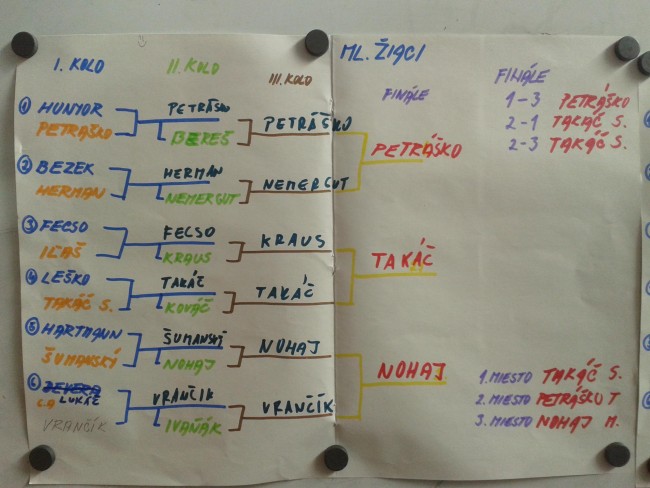 ML. ŽIACI
I. KOLO
① HUNYOR
PETRÁŠKO
② BEZEK
HERMAN
③ FECSO
ILAŠ
④ LEŠKO
TAKÁČ S.
⑤ HARTMANN
ŠUMANSKÝ
⑥
LUKÁČ
VRANČÍK
II. KOLO
PETRÁSKO
BEREŠ
HERMAN
NEMERGUT
FECSO
KRAUS
TAKÁČ
KOVÁČ
ŠUMANSKÝ
NOHAJ
VRANČÍK
IVAŇÁK
III. KOLO
PETRÁŠKO
NEMERGUT
KRAUS
TAKÁČ
NOHAJ
VRANČÍK
FINÁLE
PETRÁŠKO
TAKÁČ
NOHAJ
FINÁLE
1-3 PETRÁŠKO
2-1 TAKÁČ S.
2-3 TAKÁČ S.
1. MIESTO TAKÁČ S.
2. MIESTO PETRÁŠKO T
3. MIESTO NOHAJ M.